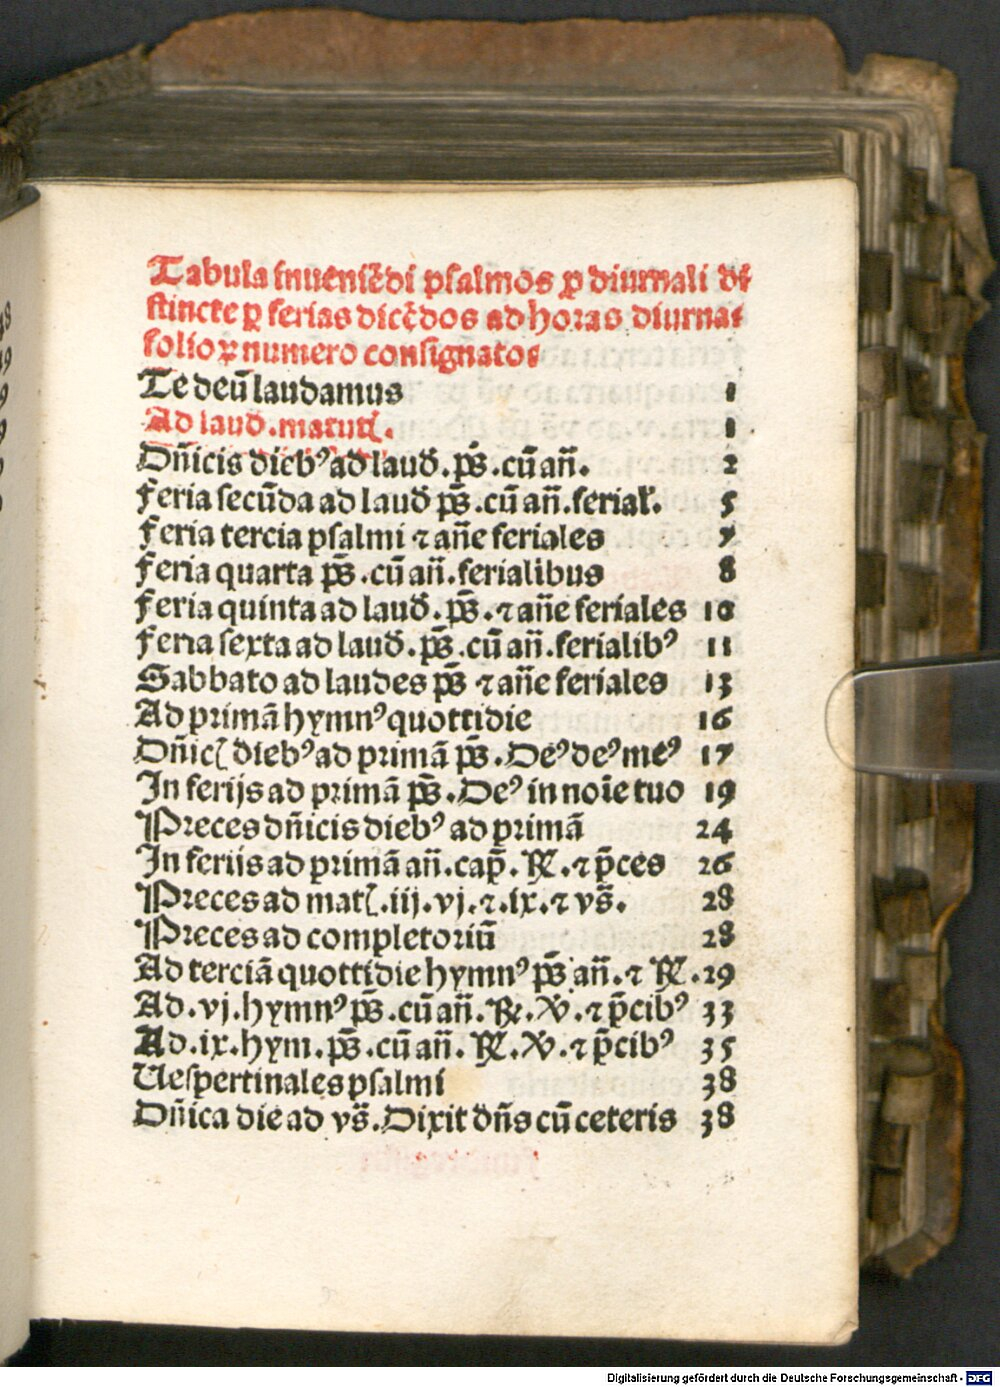 Tabula inueniẽdi psalmos ꝓ diurnali di
stincte ꝑ ferias dicẽdos ad horas diurnas
folio ꝓ numero consignatos
Te deū laudamus 1
Ad laud̄.matuti. 1
Dn̄icis diebꝰ ad laud̄.ps̄.cū an̄. 2
Feria secūda ad laud̄ ps̄.cū an̄.ferial̛. 5
Feria tercia psalmi ⁊ an̄e feriales 7
Feria quarta ps̄.cū an̄.ferialibus 8
Feria quinta ad laud̄.ps̄.⁊ an̄e feriales 10
Feria sexta ad laud̄.ps̄.cū an̄.ferialibꝰ 11
Sabbato ad laudes ps̄ ⁊ an̄e feriales 13
Ad primā hymnꝰ quottidie 16
Dn̄ic̛ diebꝰ ad primā ps̄.Deꝰ deꝰ meꝰ 17
In ferijs ad primā ps̄.Deꝰ in noīe tuo 19
Preces dn̄icis diebꝰ ad primā 24
In ferijs ad primā an̄.cap̄.℟.⁊ p̄ces 26
Preces ad mat̛.iij.vj.⁊.ix.⁊ vs̄. 28
Preces ad completoriū 28
Ad terciā quottidie hymnꝰ ps̄ an̄.⁊ ℟. 29
Ad.vj.hymnꝰ ps̄.cū an̄.℟.℣.⁊ p̄cibꝰ 33
Ad.ix.hym.ps̄.cū an̄.℟.℣.⁊ p̄cibꝰ 35
Uespertinales psalmi 38
Dn̄ica die ad vs̄.Dixit dn̄s cū ceteris 38
Digitalisierung gefördert durch die Deutsche Forschungsgemeinschaft - DFG